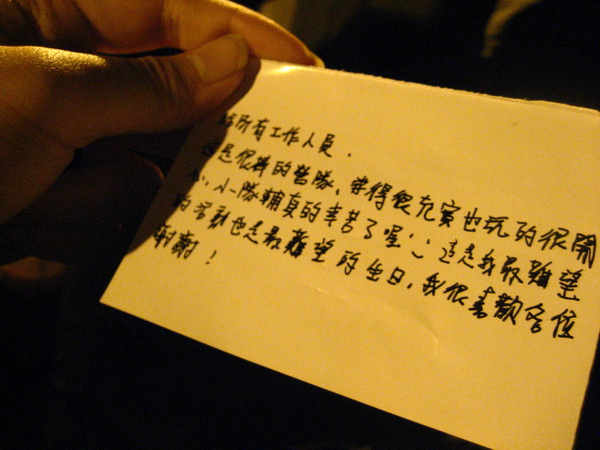 給所有工作人員.
這是很棒的營隊、穿得很充實也玩的很開
心,小一隊輔真的辛苦了喔:) 這是我最難望
的活動也是最難望的生日,我很喜歡各位
謝謝!